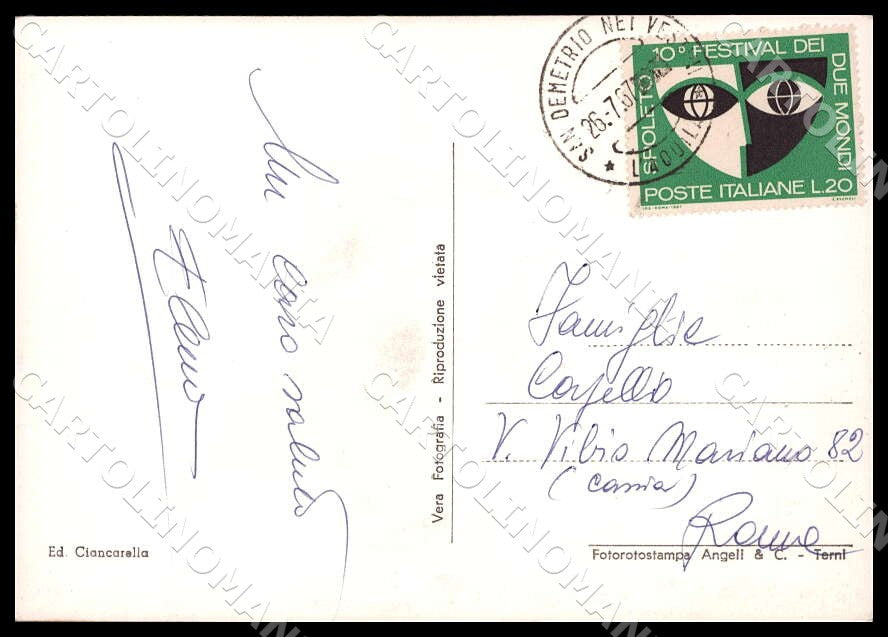 Un caro saluto
Vera Fotografia - Riproduzione vietata
Ed. Ciancarella
SAN DEMETRIO NEI
26.-7.67
L'AQUILA
10° FESTIVAL DEI
DUE MONDI
SPOLETO
POSTE ITALIANE L.20
Famiglia
V. Vibio Mariano 82
(Cassia)
Roma
Fotorotostampa Angeli & C. - Terni
CARTOLINOMANIA